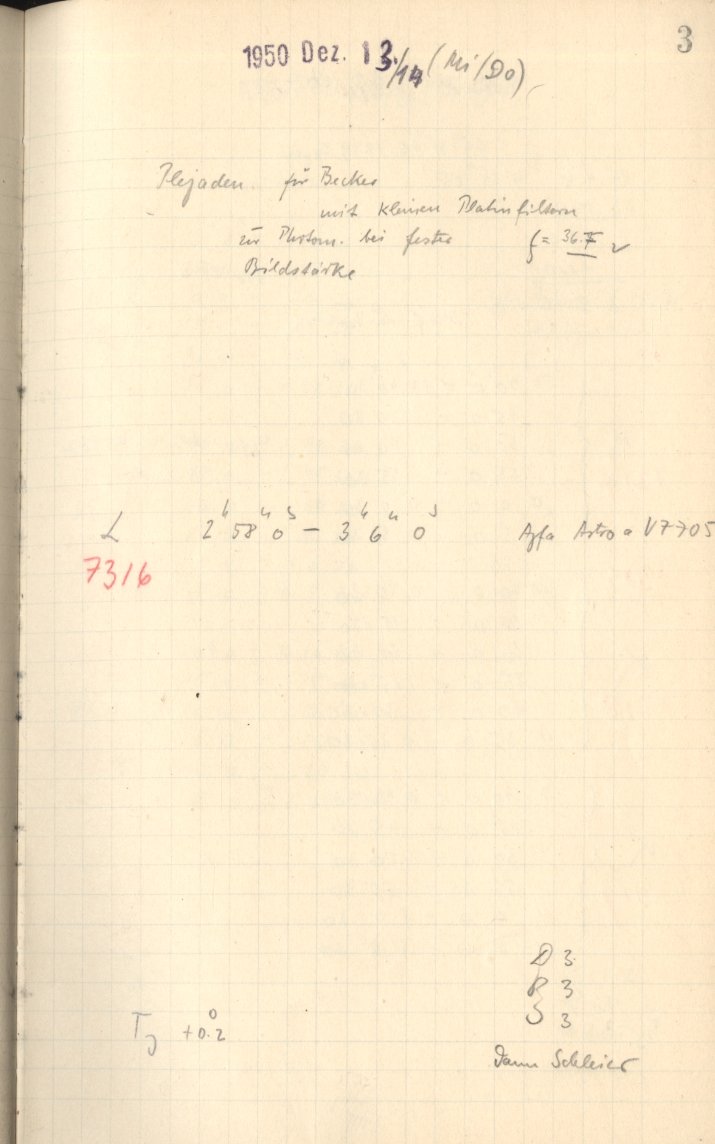 3
1950 Dez. 13/14 (Mi/Do)
Plejaden. für Becker
mit kleinen Platinfiltern
zur Photom. bei fester f = 36.7
Bildstärke
L 2h 58m 0s – 3h 6m 0s Agfa Astro a V7705
7316
D 3
R 3
S 3
TJ +0.2°
Dann Schleier